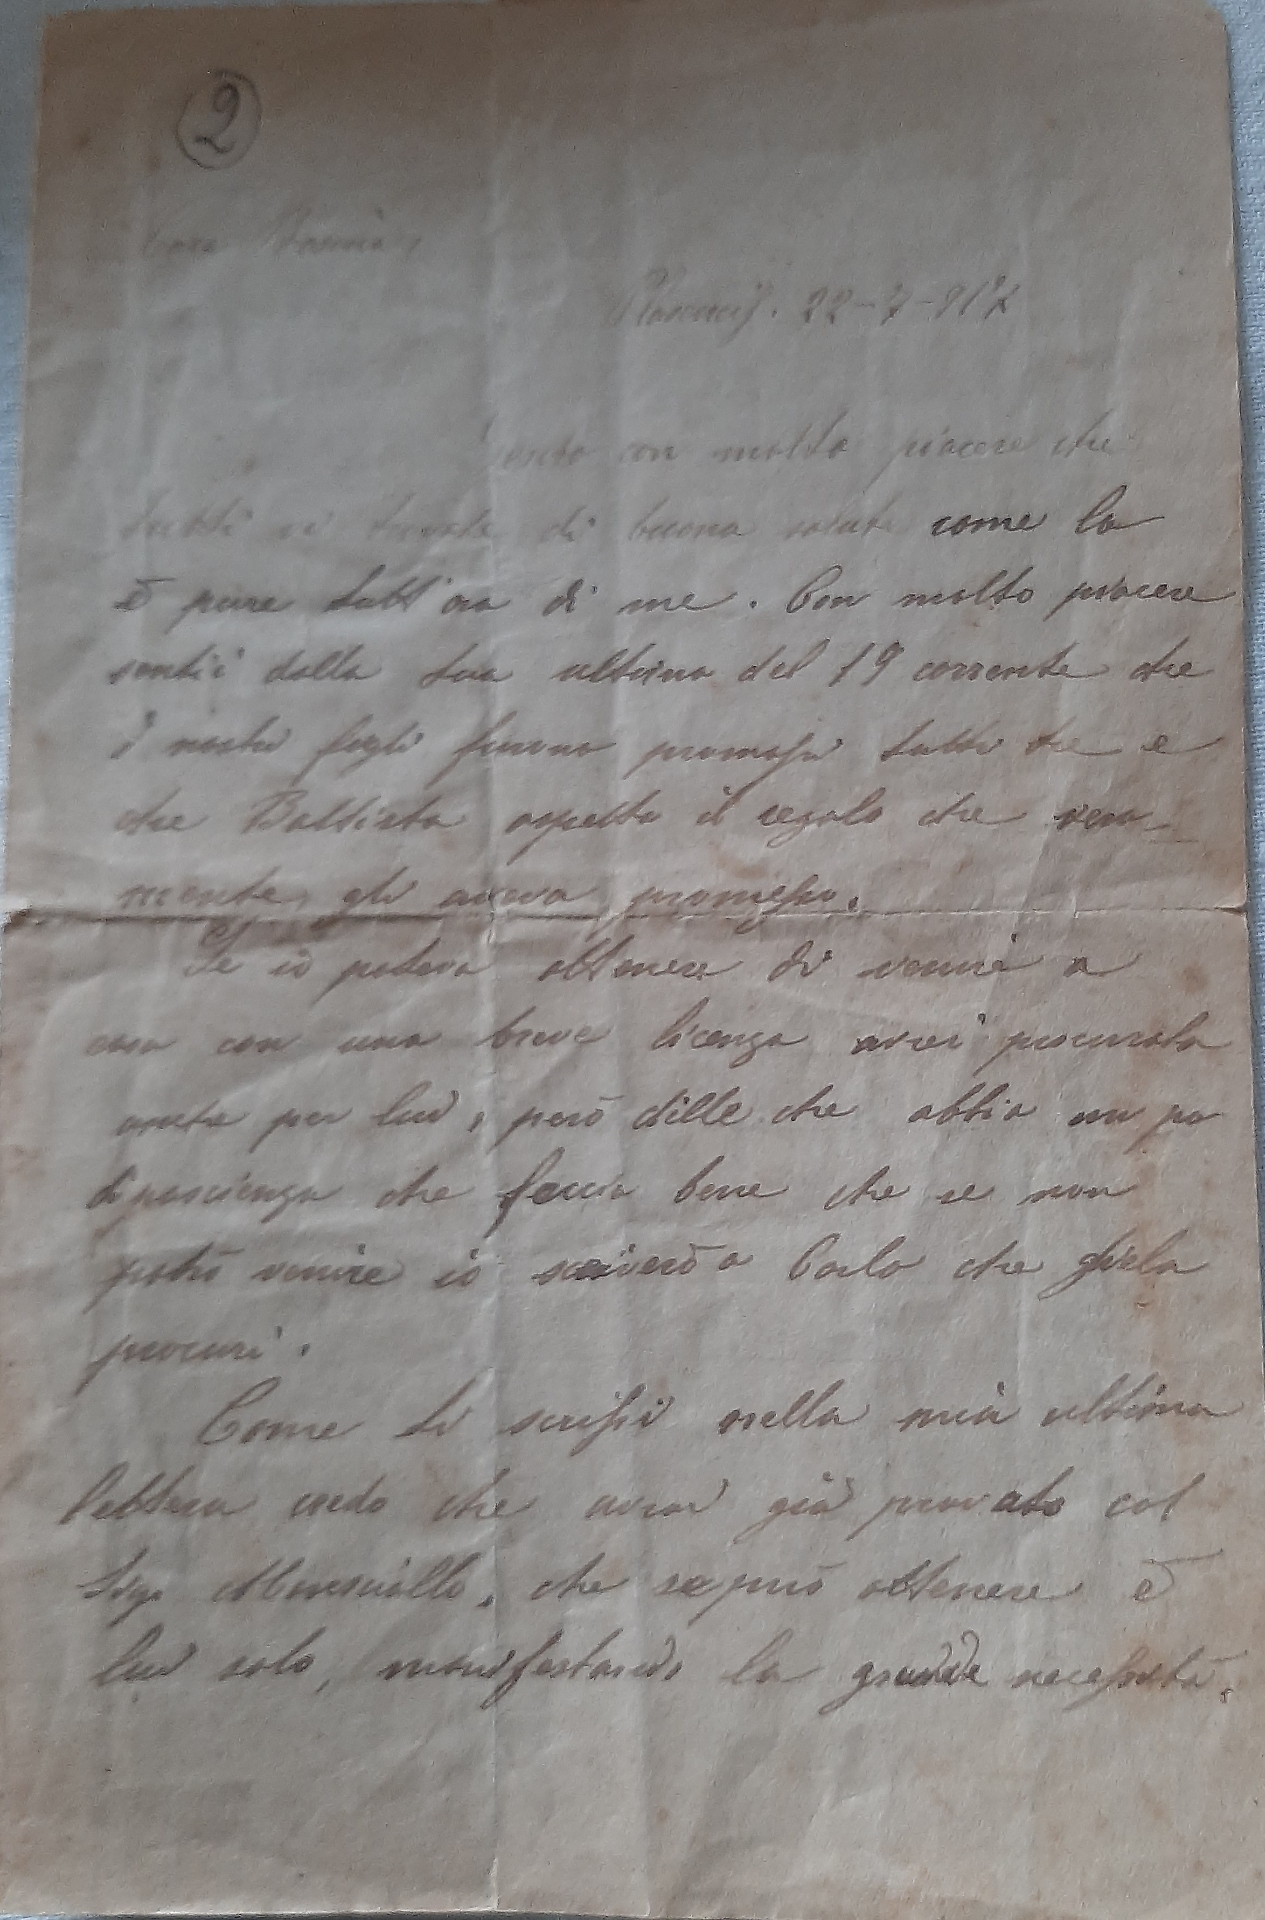 2
Cara
22-7-917
con molto piacere che
tutti vi di buona salute come la
è pure tutt'ora di me. Con molto piacere
sentii dalla tua ultima del 19 corrente che
i nostri figli furono promossi tutti tre e
che Battista aspetta il regalo che vera-
mente gli aveva promesso.
Se io poteva ottenere di venire a
casa con una breve licenza avrei procurato
anche per lui, però dille che abbia un po
di pascienza che faccia bene che se non
potrò venire io scriverò a Carlo che
procuri.
Come ti scrissi nella mia ultima
lettera credo che avrai già provato col
Sig. Maresciallo, che se può ottenere è
lui solo, manifestando la grande necessità.